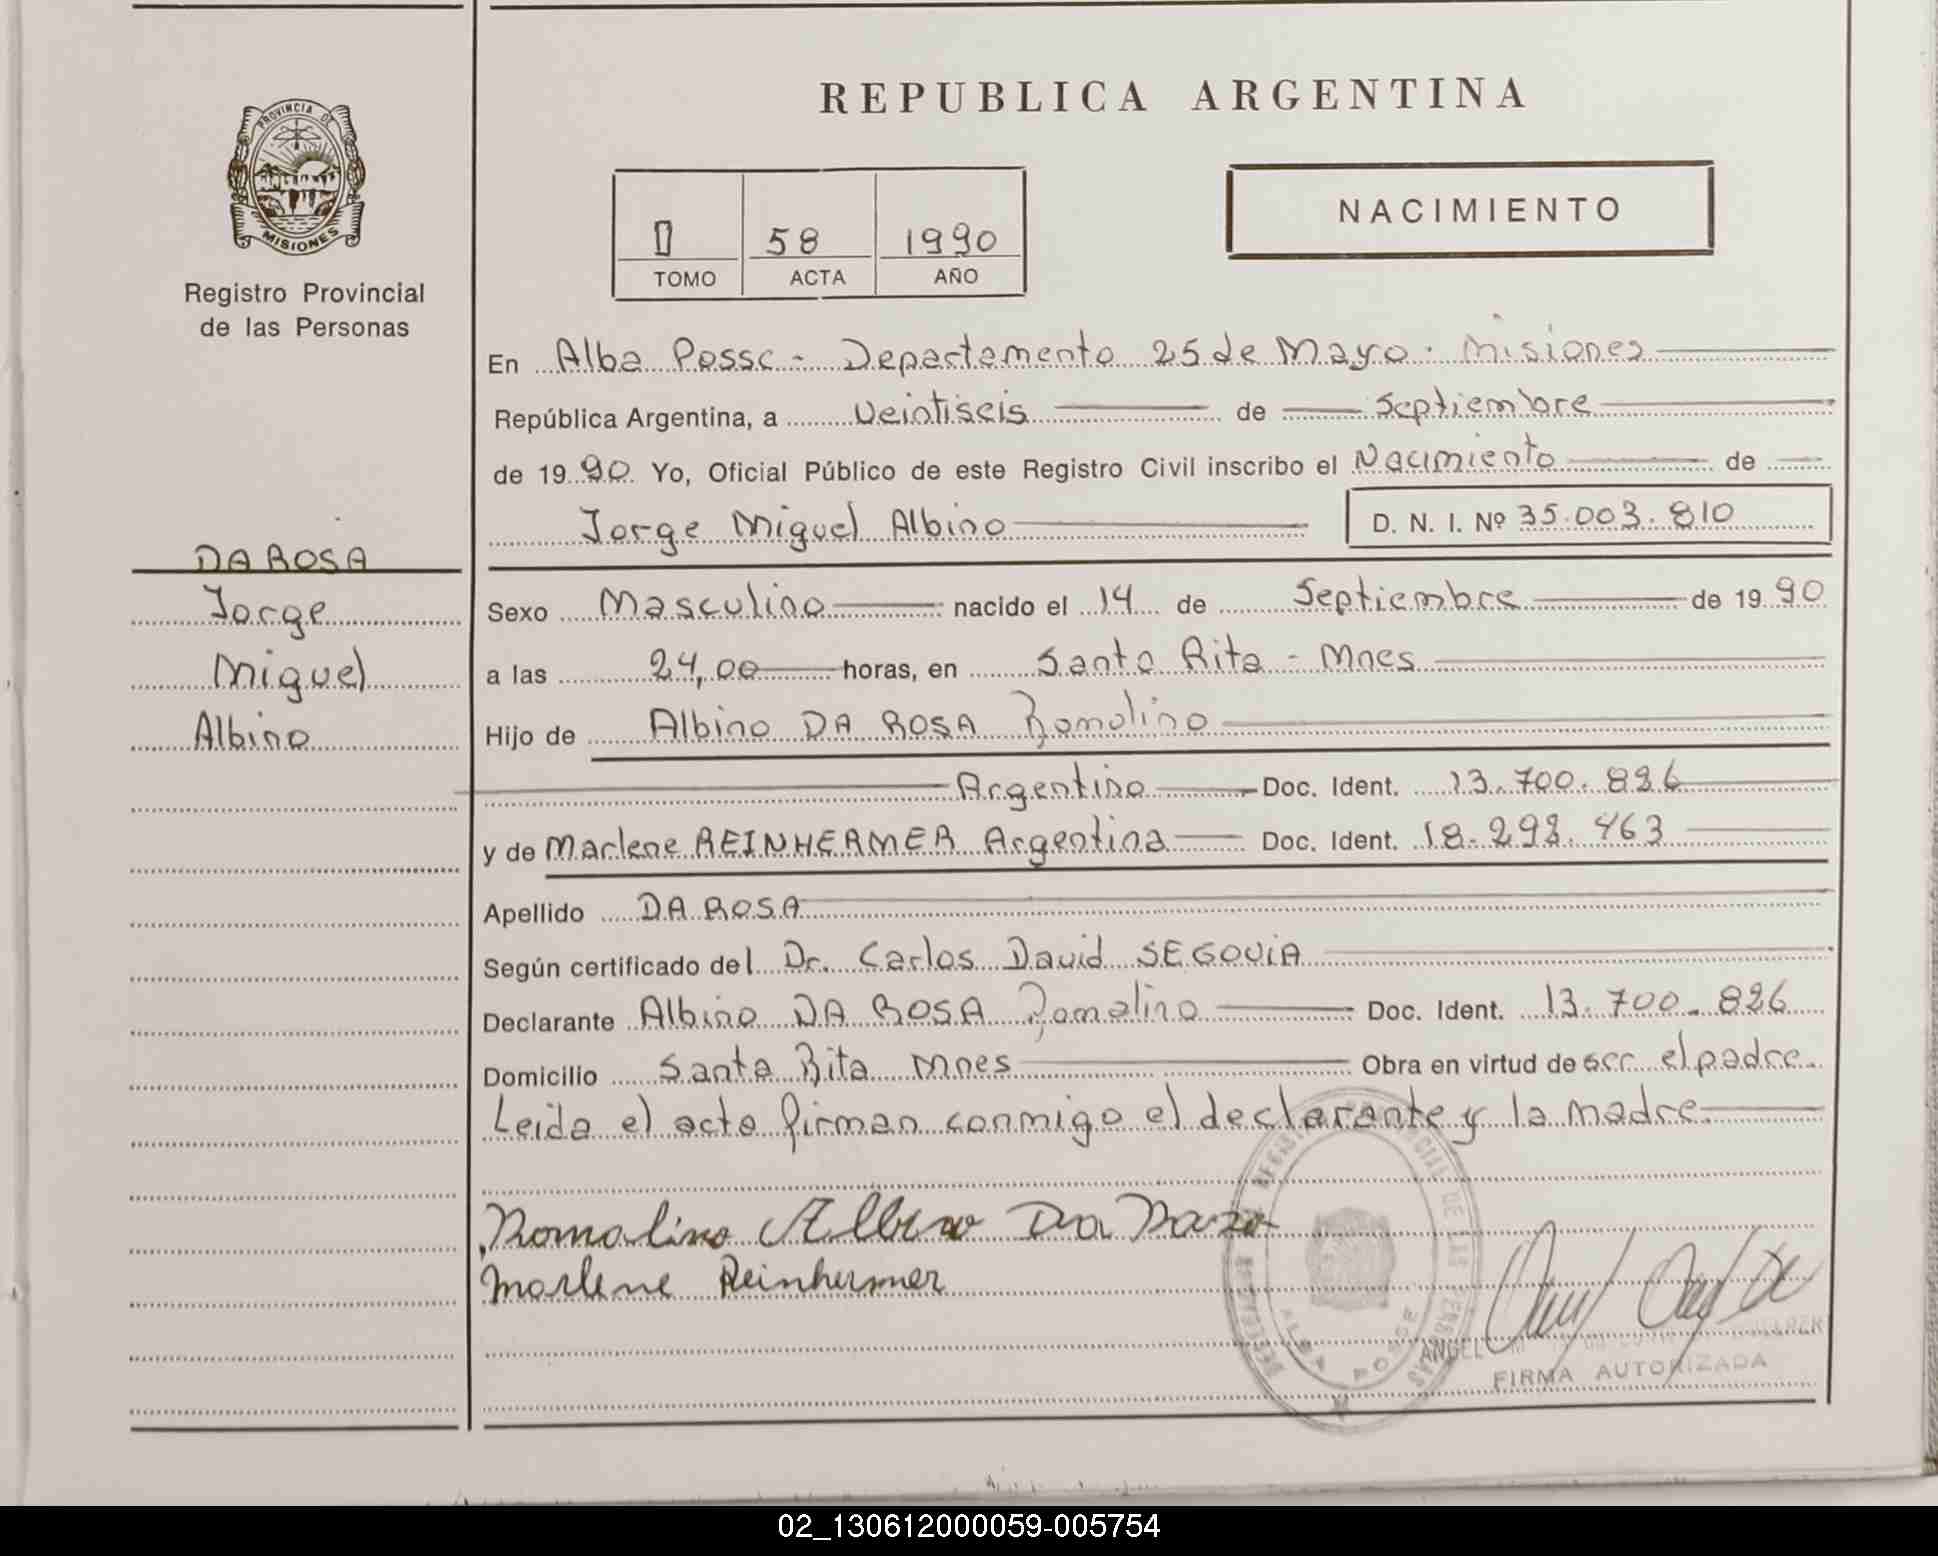 PROVINCIA DE
MISIONES
Registro Provincial
de las Personas
DA ROSA
Jorge
Miguel
Albino
REPUBLICA ARGENTINA
II 58 1990
TOMO ACTA AÑO
NACIMIENTO
En Alba Posse - Departamento 25 de Mayo - Misiones
República Argentina, a Veintiseis de Septiembre
de 1990 Yo, Oficial Público de este Registro Civil inscribo el Nacimiento de
Jorge Miguel Albino D. N. I. Nº 35.003.810
Sexo Masculino nacido el 14 de Septiembre de 1990
a las 24,00 horas, en Santa Rita - Mnes
Hijo de Albino DA ROSA Romalino
Argentino Doc. Ident. 13.700.826
y de Marlene REINHERMER Argentina Doc. Ident. 18.292.463
Apellido DA ROSA
Según certificado del Dr. Carlos David SEGOVIA
Declarante Albino DA ROSA Romalino Doc. Ident. 13.700.826
Domicilio Santa Rita Mnes Obra en virtud de ser el padre.
Leida el acta firman conmigo el declarante y la madre
Romalino Albino Da Roza
Marlene Reinhermer
ALBA POSSE
ANGEL
FIRMA AUTORIZADA
02_130612000059-005754